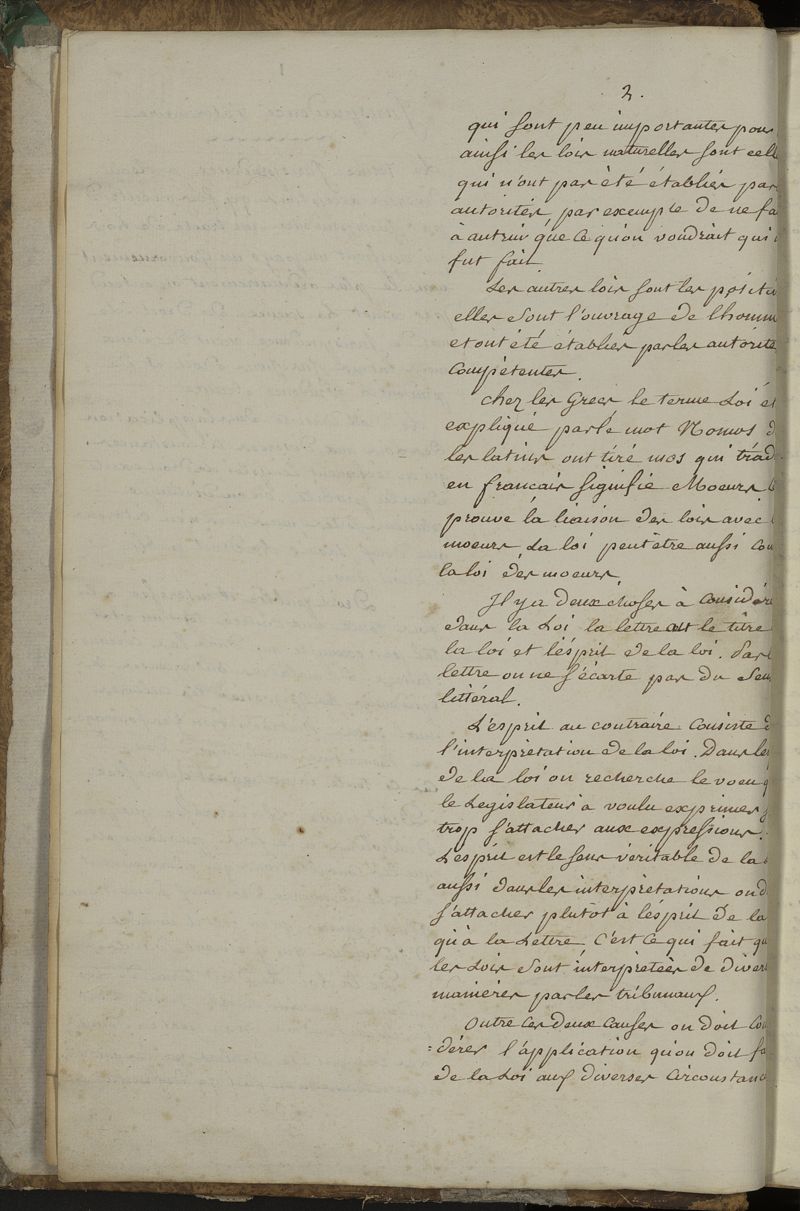 2.
qui sont peu importantes pour
ainsi les lois naturelles sont cell
qui n'ont pas été établies par
autorités, par exemple de ne fa
à autrui que ce qu'on voudrait qui
fut fait
Les autres lois sont les positi
elles sont l'ouvrage de l'homm
et ont été établies par les autorité
compétentes.
Chez les Grecs le terme Loi ét
expliqué par le mot Nomos d
les latins ont tiré mos qui trad
en francais signifie Moeurs
prouve la liaison des lois avec
moeurs, La loi peut être aussi con
la loi des moeurs
Il y a deux choses à considér
dans la Loi la lettre ou le titre
la loi et l'esprit de la loi. Par
lettre on ne s'écarte pas du sens
littéral.
L'esprit au contraire consiste d
l'interprétation de la loi. Dans l'es
de la loi on recherche le voeu q
le Legislateur a voulu exprimer
trop s'attacher aux expressions.
L'esprit est le sens véritable de la
aussi dans les interprétations on d
s'attacher plutôt à l'ésprit de la
qu'à la Lettre, C'est ce qui fait qu
les Lois sont interprêteés de divers
manières par les tribunaux.
Outre ces deux causes on doit con
=dérer l'application qu'on doit fa
de la Loi aux diverses circonstanc